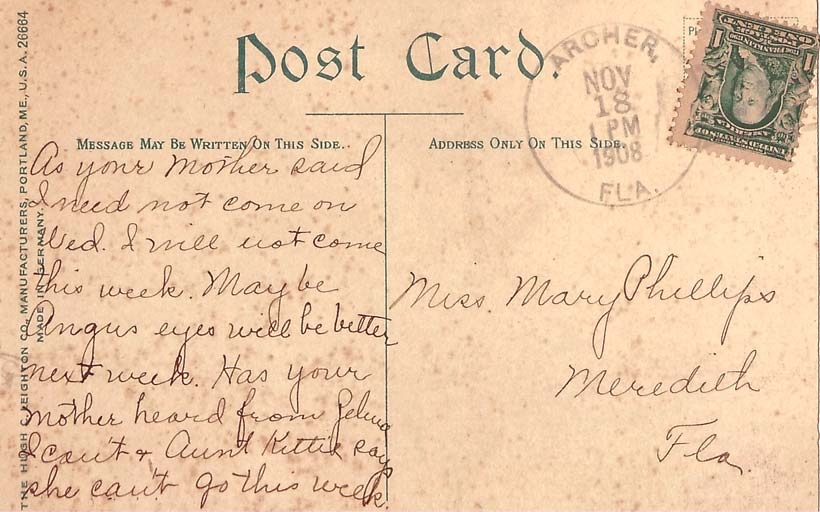 Post Card.
MESSAGE MAY BE WRITTEN ON THIS SIDE..
ADDRESS ONLY ON THIS SIDE.
ARCHER,
NOV
18
1 PM
1908
FLA.
As your Mother said
I need not come on
Wed. I will not come
this week. May be
Angus eyes will be better
next week. Has your
Mother heard from
I can't & Aunt Kittie say
she can't go this week.
Miss. Mary Phillips
Meredith
Fla.
THE HUGH C. LEIGHTON CO., MANUFACTURERS, PORTLAND, ME., U.S.A. 26664
MADE IN GERMANY.